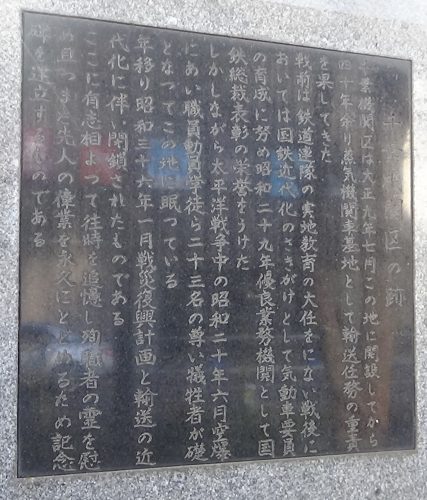 千葉機関区の跡
千葉機関区は大正九年七月この地に開設してから
四十年余り蒸気機関車基地として輸送任務の重責
を果してきた
戦前は鉄道連隊の実地教育の大任をにない戦後に
おいては国鉄近代化のさきがけとして気動車要員
の育成に努め昭和二十九年優良業務機関として国
鉄総裁表彰の栄誉をうけた
しかしながら太平洋戦争中の昭和二十年六月空爆
にあい職員動員学徒ら二十三名の尊い犠牲者が礎
となつてこの地に眠つている
年移り昭和三十六年一月戦災復興計画と輸送の近
代化に伴い閉鎖されたものである
ここに有志相よつて往時を追憶し殉職者の霊を慰
め且つまた先人の偉業を永久にとどめるため記念
碑を建立するものである